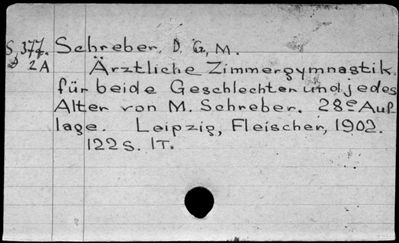 S. 377. Schreber, D. G. M.
D 2A Ärztliche Zimmergymnastik
für beide Geschlechter und jedes
Alter von M. Schreber. 28e Auf-
lage. Leipzig, Fleischer, 1902.
122 S. 1T.